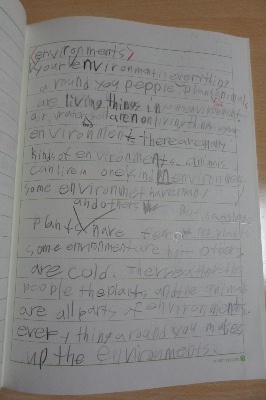 (environments)
your environment is everything
around you people plants animals
are living things in your environment
air water soil are nonliving things in your
environment there are many
kinds of environments animals
can live in one kind environments
some environment have many
plants have few
and others
some environment are hot others
are cold. The weather the
people the plants and the animals
are all parts of environments.
every thing around you makes
up the environments.